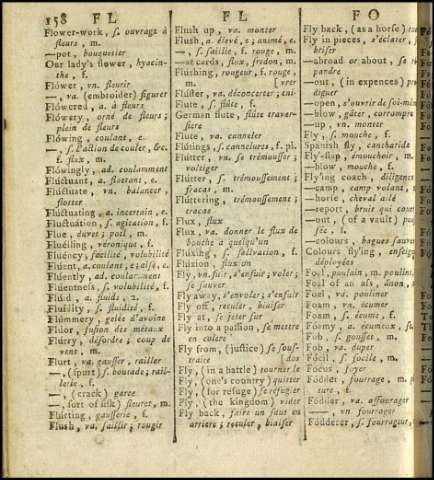 158 FL
Flower-work, s. ouvrage à
fleurs, m.
—pot, bouquetier
Our lady's flower, hyacin-
the, f.
Flówer, vn. fleurir
—, va. (embroider) figurer
Flówered, a. à fleurs
Flówery, orné de fleurs;
plein de fleurs
Flówing, coulant, e.
—, s. l'action de couler, &c.
f. flux, m.
Flówingly, ad. coulamment
Flúctuant, a. flotant, e.
Flúctuate, vn. balancer,
flotter
Flúctuating, a. incertain, e.
Fluctuátion, s. agitation, f.
Flue, duvet; poil, m.
Fluélling, véronique, f.
Fluéncy, facilité, volubilité
Flúent, a. coulant, e; aisé, e.
Flúently, ad. coulamment
Flúentness, s. volubilité, f.
Flúid, a. fluide, 2.
Fluídity, s. fluidité, f.
Flúmmery, gelée d'avoine
Flúor, fusion des métaux
Flúrry, désordre; coup de
vent, m.
Flurt, va. gausser, railler
—, (spurt) s. boutade; rail-
lerie, f.
—, (crack) garce
—, (sort of silk) fleuret, m.
Flúrting, gausserie, f.
Flush, va. saisir; rougir
FL
Flush up, va. monter
Flush, a. élevé, e; animé, e.
—, s. saillie, f. rouge, m.
—at cards, flux, fredon, m.
Flúshing, rougeur, f. rouge,
m. [vrer
Flúster, va. déconcerter; eni-
Flute, s. flûte, f.
German flute, flûte traver-
sière
Flute, va. canneler
Flútings, s. cannelures, f. pl.
Flútter, vn. se trémousser;
voltiger
Flútter, s. trémoussement;
fracas, m.
Flúttering, trémoussement;
tracas
Flux, flux
Flux, va. donner le flux de
bouche à quelqu'un
Flúxing, s. salivation, f.
Flúxion, fluxion
Fly, vn. fuir, s'enfuir; voler;
se sauver
Fly away, s'envoler; s'enfuir
Fly off, reculer, biaiser
Fly at, se jeter sur
Fly into a passion, se mettre
en colère
Fly from, (justice) se sous-
traire [dos
Fly, (in a battle) tourner le
Fly, (one's country) quitter
Fly, (for refuge) se réfugier
Fly, (the kingdom) vider
Fly back, faire un saut en
arriere; reculer, biaiser
FO
Fly back, (as a horse)
Fly in pieces, s'éclater,
briser
—abroad or about, se ré-
pandre
—out, (in expences)
diguer
—open, s'ouvrir de soi-mê
—blow, gâter, corrompre
—up, vn. monter
Fly, s. mouche, f.
Spanish fly, cantharide
Fly-flap, émouchoir, m.
—blow, mouche, f.
Flying coach, diligence
—camp, camp volant,
—horse, cheval ailé
—report, bruit qui cour
—out, (of a vault)
sée, f.
—colours, bagues sauv
Colours flying, enseig
déployées
Foal, poulain, m. poulin
Foal of an ass, ânon,
Foal, va. pouliner
Foam, vn. écumer
Foam, s. écume, f.
Fóamy, a. écumeux,
Fob, s. gousset, m.
Fob, va. duper
Fócil, s. focile, m.
Fócus, foyer
Fódder, fourrage, m.
ture, f.
Fódder, va. affourager
—, vn fourager
Fódderer, s. fourrageur,